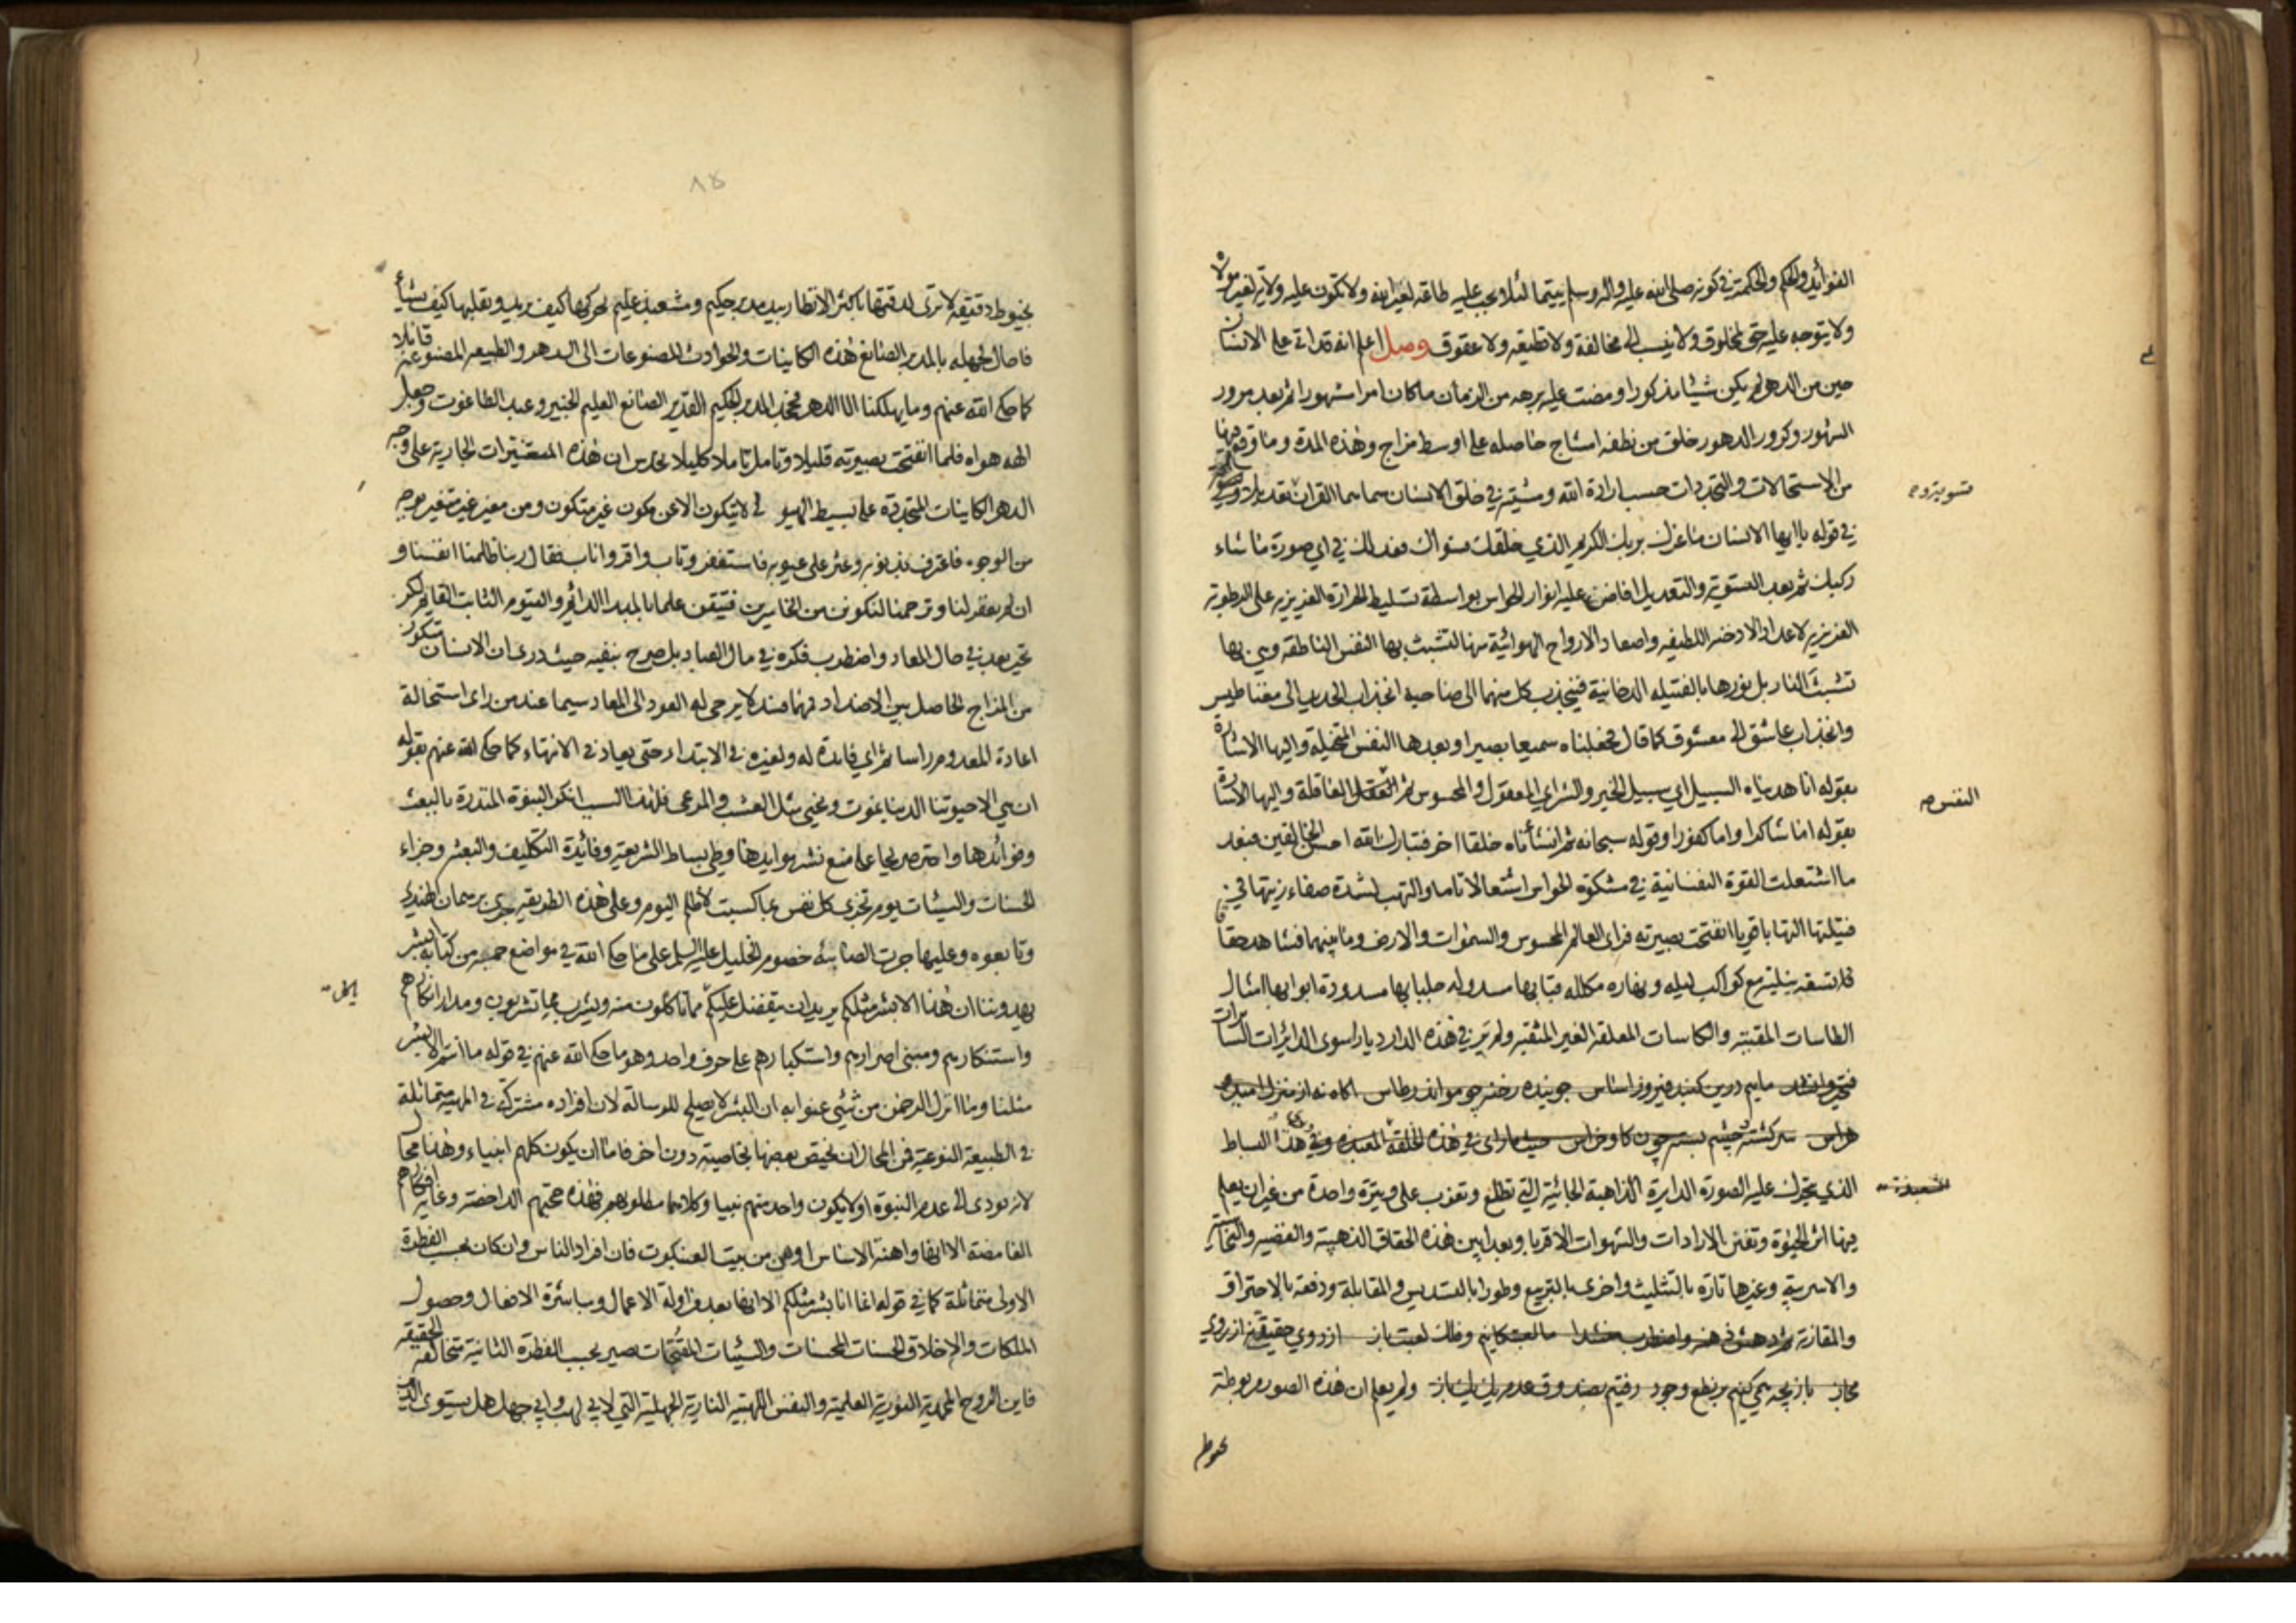 الفوائد والحكم والحكمة في كونه صلى الله عليه واله وسلم يتيما لئلا يجب عليه طاعة لغير الله ولا تكون عليه ولاية لغير مولاه
ولا يتوجه عليه حق لمخلوق ولا ينسب الى مخالفة ولا قطيعة ولا عقوق وصل اعلم انه قد اتى على الانسان
حين من الدهر لم يكن شيئا مذكورا ومضت عليه برهة من الزمان ما كان امرا مشهورا ثم بعد مرور
الشهور وكرور الدهور خلق من نطفة امشاج حاصله على اوسط مزاج وهذه المدة وما وقع فيها
من الاستحالات والتجددات حسب ارادة الله ومشيته في خلق الانسان سماها القران تعديلا وتسوية
تسوية وتصوير
في قوله يا ايها الانسان ما غرك بربك الكريم الذي خلقك فسواك فعدلك في اي صورة ما شاء
ركبك ثم بعد التسوية والتعديل افاض عليه انوار الحواس بواسطة تسليط الحرارة الغريزيه على الرطوبة
الغريزيه لاعداد الادخنه اللطيفه واصعاد الارواح الهوائية منها لتشبث بها النفس الناطقه وهي بها
تشبث النار بل نورها بالفتيله الدخانية فينجذب كل منهما الى صاحبه انجذاب الحديد الى مغناطيس
وانجذاب عاشق الى معشوق كما قال فجعلناه سميعا بصيرا وبعدها النفس المتخيله واليها الاشارة
بقوله انا هديناه السبيل اي سبيل الخير والشر اي المعقول والمحسوس ثم العقل العاقلة واليها الاشارة
النفس صح
بقوله اما شاكرا واما كفورا وقوله سبحانه ثم انشأناه خلقا اخر فتبارك الله احسن الخالقين فبعد
ما اشتعلت القوة النفسانية في مشكوة الحواس اشتعالا تاما والتهب لشدة صفاء زيتها في
فتيلتها التهابا قويا انفتحت بصيرته فراى العالم المحسوس والسموات والارض وما بينهما فشاهد حقا
مع كواكب ليله ونهاره مكلله قبابها مسدوله جلبابها مسدودة ابوابها امثال
الطاسات المقببة والكاسات المعلقه الغير المثقبه ولم ير في هذه الدار ديارا سوى الدائرات السائرات
فتحير وانشد مايم درين كنبد فيروز اساس جوينده رخنه چو مور اندر طاس اكاه نه از منزل اميد
هراس سركشته وچشم بسته چون كاو خراس حيث ما راى في هذه الحلقة وفي هذا البساط
الذي يتحرك عليه الصورة الدايرة الذاهبة الجائية التي تطلع وتغرب على وتيرة واحدة من غير ان يعلم
المشعبذة
فيها اثر الحيوة وتفنن الارادات والشهوات الا قربا وبعدا بين هذه الحقاق الذهبية والفضية والنحاسية
والاسربية وغيرها تارة بالتثليث واخرى بالتربيع وطورا بالتسديس والمقابلة ودفعة بالاحتراق
والمقارنة ثم دهش واضطرب منشدا ما لعبتكانيم وفلك لعبت باز از روى حقيقتي نه از روى
مجاز بازيچه همى كنيم بر نطع وجود رفتيم بصندوق عدم يك يك باز ولم يعلم ان هذه الصور مربوطة
بخيوط
٨٥
بخيوط دقيقه لا ترى لدقتها باكثر الانظار بيد مدبر حكيم ومشعبذ عليم يحركها كيف يريد ويقلبها كيف يشاء
فاحال لجهله بالمدبر الصانع هذه الكاينات والحوادث المصنوعات الى الدهر والطبيعه المصنوعة قائلا
كما حكى الله عنهم وما يهلكنا الا الدهر فجحد المدبر الحكيم القدير الصانع العليم الخبير وعبد الطاغوت وجعل
الهه هواه فلما انفتحت بصيرته قليلا وتامل تاملا كليلا بحدس ان هذه المتغيرات الجارية على وجه
الدهر الكاينات المتجددة على بسيط الهيولى لا يتكون الا عن مكون غير متكون ومن مغير غير متغير بوجه
من الوجوه فاعترف بذنوبه وعثر على عيوبه فاستغفر وتاب واقر واناب فقال ربنا ظلمنا انفسنا و
ان لم يغفر لنا وترحمنا لنكونن من الخاسرين فتيقن علما بالمبدا الدائم والقيوم الثابت القايم لكن
تحير بعد في حال المعاد واضطرب فكره في مال العباد بل صرح بنفيه حيث درى ان الانسان تكون
من المزاج الحاصل بين الاضداد فمهما فسد لا يرجى له العود الى المعاد سيما عند من راى استحالة
اعادة المعدوم راسا ثم اي فائدة له ولغيره في الابتداء حتى يعاد في الانتهاء كما حكى الله عنهم بقوله
ان هي الا حيوتنا الدنيا نموت ونحيى مثل العشب والمرعى فلهذا السبب انكر النبوة المنذرة بالبعث
وفوائدها واحترص على منع نشر موايدها وطي بساط الشريعة وفائدة التكليف والبعثة وجزاء
الحسنات والسيئات يوم تجزى كل نفس بما كسبت لا ظلم اليوم وعلى هذه الطريقه جرى برسمان الهندي
وتابعوه وعليها جرت الصابئه خصوم الخليل عليه السلم على ما حكى الله في مواضع جمه من كتابه ابشر
يهدوننا ان هذا الا بشر مثلكم يريد ان يتفضل عليكم مما تاكلون منه ويشرب مما تشربون ومدار انكارهم
ياكل
واستنكارهم ومبنى اصرارهم واستكبارهم على حرف واحد وهو ما حكى الله عنهم في قوله ما انتم الا بشر
مثلنا وما انزل الرحمن من شئ عنوا به ان البشر لا يصلح للرسالة لان افراده مشتركة في المهية متماثلة
في الطبيعة النوعية فمن المحال ان يخص بعضها بخاصية دون اخر فاما ان يكون كلهم انبياء وهذا محال
لانه يودي الى عدم النبوة او لا يكون واحد منهم نبيا وكلاهما مطلوبهم فهذه حجتهم الداحضة وغاية افكارهم
الغامضة الا انها واهنة الاساس اوهن من بيت العنكبوت فان افراد الناس وان كان بحسب الفطرة
الاولى متماثلة كما في قوله انما انا بشر مثلكم الا انها بعد مزاولة الاعمال ومباشرة الافعال وحصول
الملكات والاخلاق الحسنات المحسنات والسيئات المقبحات تصير بحسب الفطرة الثانية متخالفه الحقيقه
فاين الروح المحمدية النورية العلمية والنفس اللهبية النارية الجهلية التي لابي لهب وابي جهل هل يستوى الذين